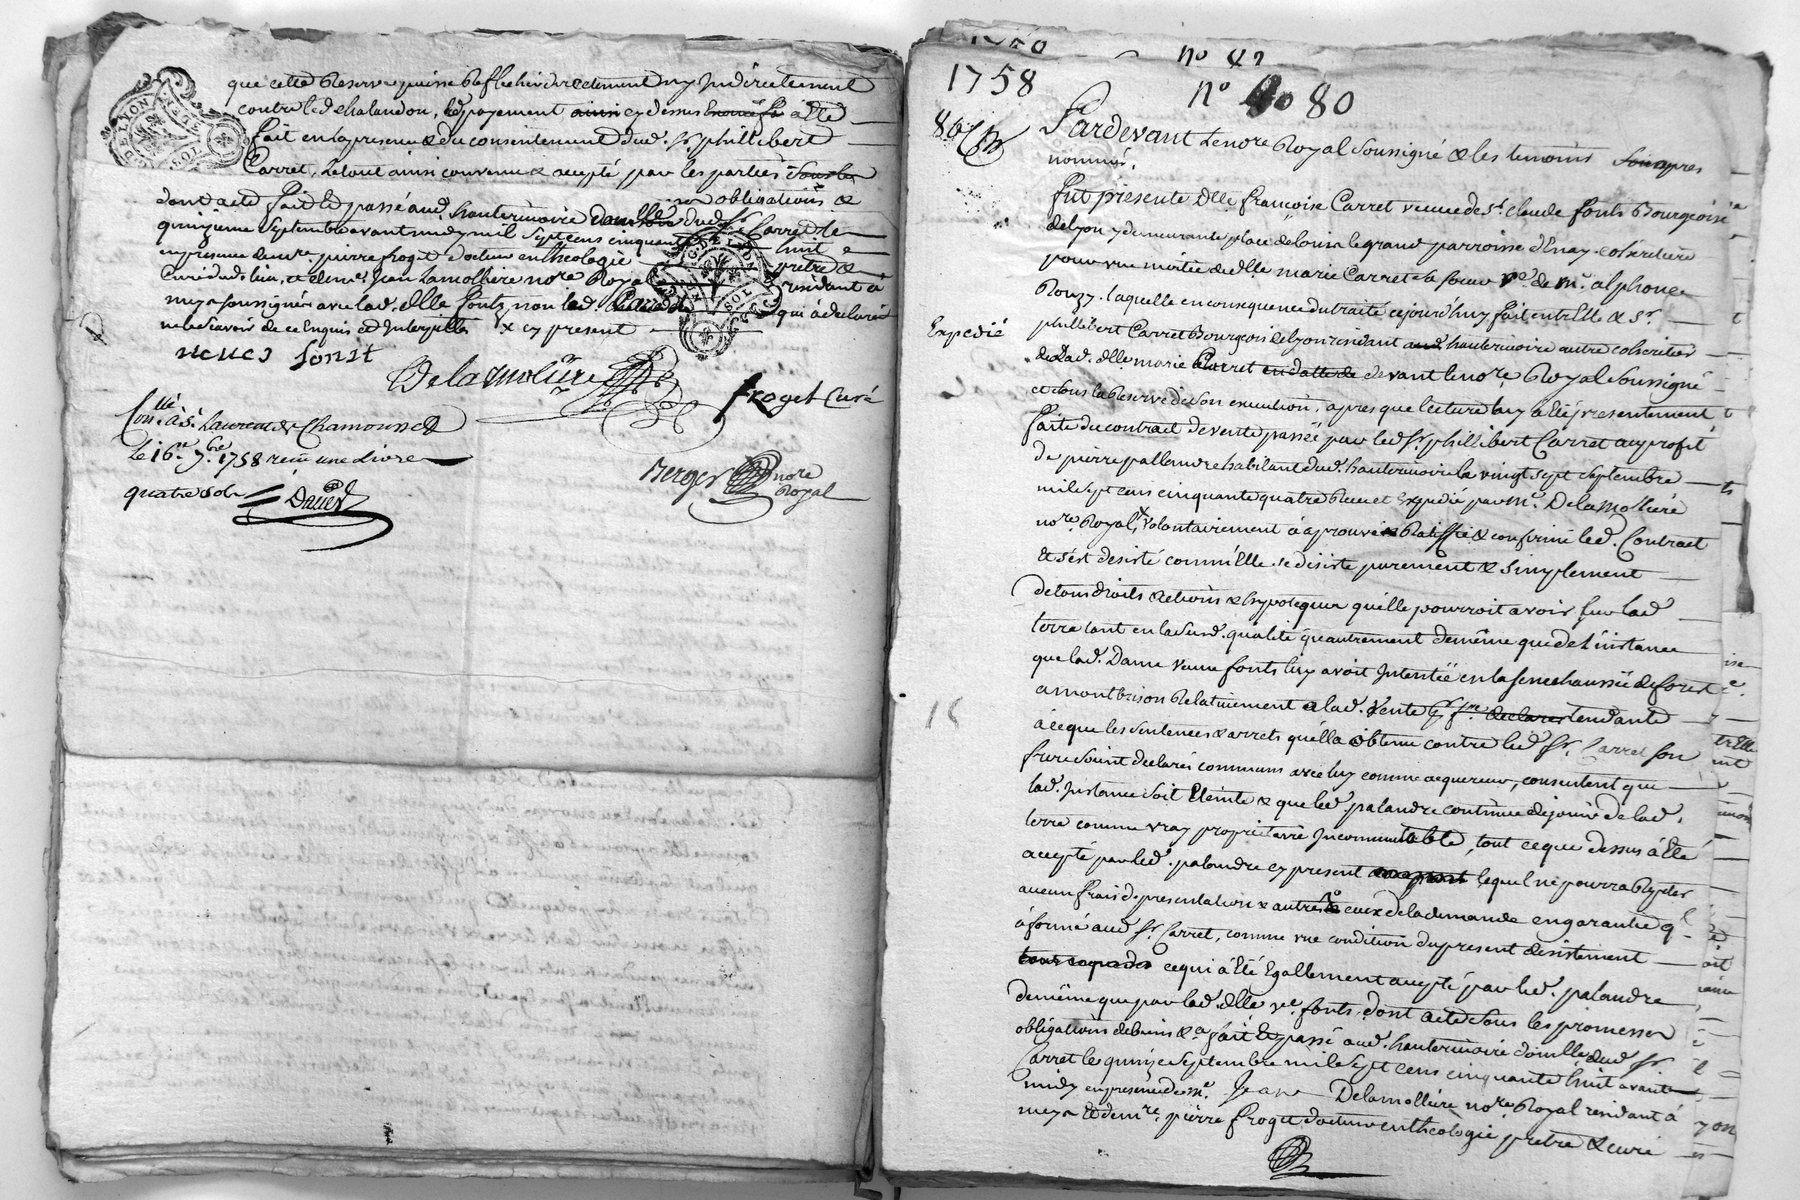 que cette Reserve puisse Reflechir directement ny Indirectement
contre led. chalandon, led. payement ainsi cy dessus à été
fait en la presence & du consentement dud. Sr. phillibert
Carret, Le tout ainsi convenu & accepté par les parties sous les
obligations &
dont acte fait & passé aud. hauterivoire domlle. dud. Sr. Carret le
quinzieme Septembre avant midy mil sept cens cinquante huit &
en presence de mre. pierre froget docteur en theologie pretre &
Curé dud. lieu, et de me. Jean Lamolliere nore. Royal residant à
meys soussignés avec lad. dlle. fonts, non led. qui à declaré
ne le scavoir de ce Enquis et Interpellé x cy present
veuve fonst
Delamoliere
froget Curé
Conllé. a St. Laurent de Chamousset
Le 16e. 7bre. 1758 reçu une Livre
quatre sols
Berger nore
Royal
GEN. DE LYON
SOL
1758
no 42
no 80
86
Pardevant Le nore Royal Soussigné & les temoins apres
nommés.
fut presente Dlle. françoise Carret veuve de Sr. claude fonts Bourgeoise
de Lyon y demeurante place de Louis le grand parroisse d'Enay, coheritiere
pour une moitié de dlle marie Carret sa soeur ve. de mr. alphonce
Rouzy. laquelle en consequence du traité cejourd'huy fait entr'Elle & Sr.
Expedié
phillibert Carret Bourgeois de Lyon residant aud. hauterivoire autre coheritier
de Lad. dlle. marie Carret en datte de devant le nore. Royal Soussigné
et sous la Reserve de son execution, apres que lecture luy a été presentement
faite du contrat de vente passée par led. Sr. phillibert Carret au profit
de pierre pallandre habitant dud. hauterivoire le vingt sept septembre
mil sept cens cinquante quatre Reçu et Expedié par me. Delamolliere
nore. Royal, volontairement a aprouvé Ratiffié & confirmé led. Contract
Et s'est desisté comm'Elle se desiste purement & simplement
de tous droits actions & hypoteques qu'elle pourroit avoir sur lad.
terre tant en la susd. qualité qu'autrement de même que de L'instance
que lad. Dame veuve fonts luy avoit Intentée en la Senechaussée de forest
a montbrison Relativement a lad. vente tendante
à ce que les sentences & arrets qu'ella obtenu contre led. Sr. Carret son
frere soient declarés communs avec luy comme acquereur, consentent que
lad. Instance soit Eteinte & que led. palandre continue de jouir de lad.
terre comme vray proprietaire Incommutable, tout ce que dessus à Eté
accepté par led. palandre cy present lequel ne pourra Repeter
aucun frais de presentation & autres ceux de la demande en garantie ql.
à formé aud. Sr. Carret, comme une condition du present desistement
ce qui à Eté Egallement accepté par led. palandre
de même que par lad. dlle. ve. fonts, dont acte sous les promesses
obligations de biens &a. fait & passé aud. hauterivoire domlle. dud. Sr.
Carret le quinze Septembre mil Sept cens cinquante huit avant
midy en presence de me. Jean Delamolliere nore. Royal residant à
meys & de mre. pierre froget docteur en theologie pretre & curé